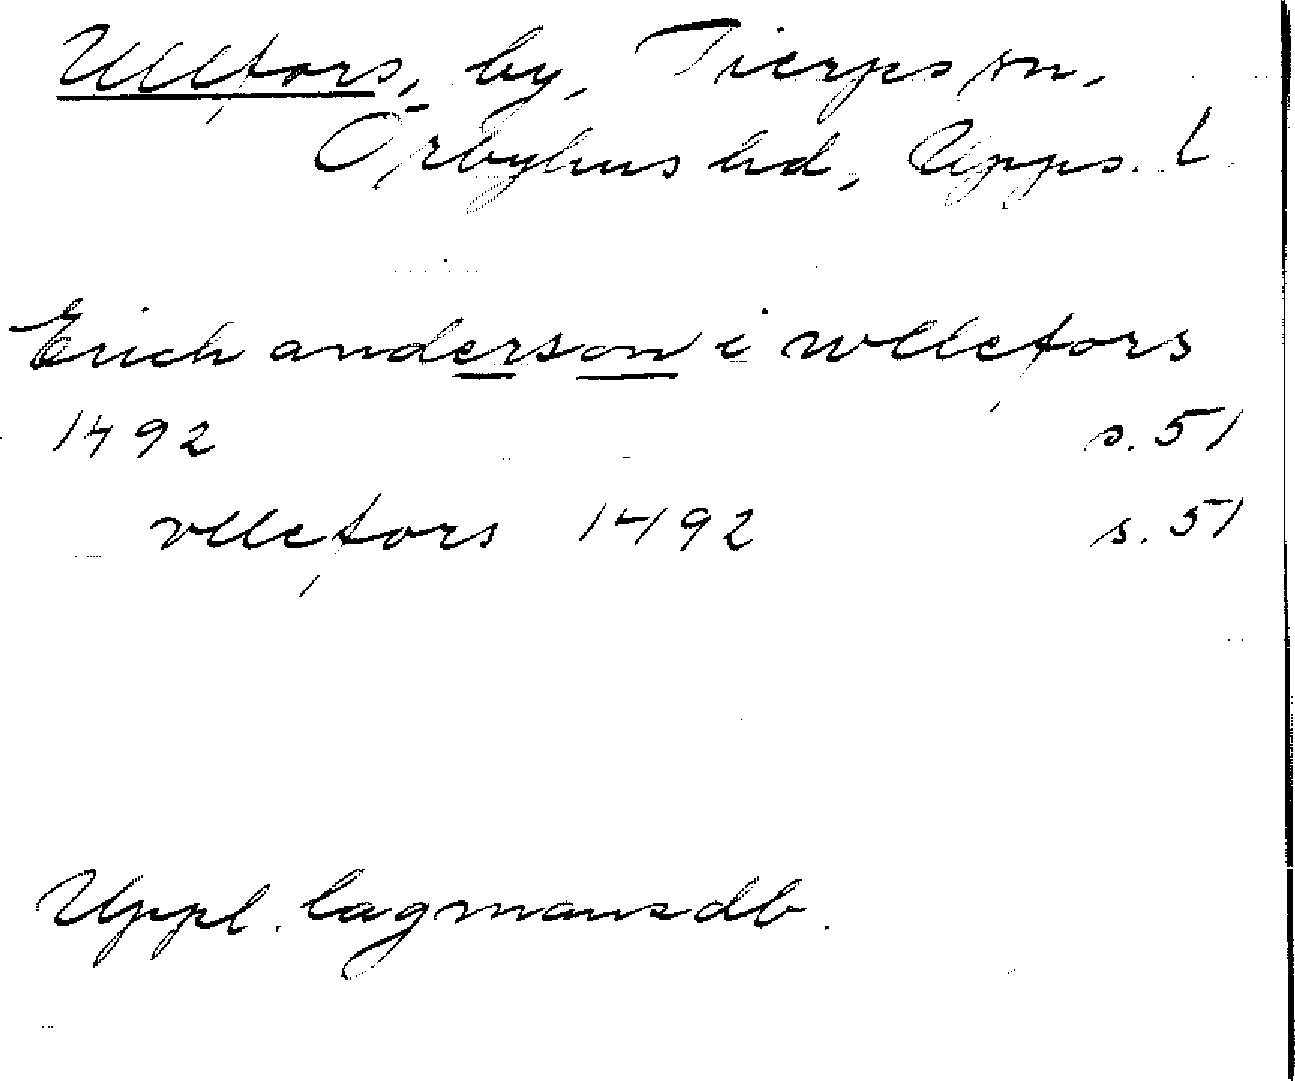 Ullfors, by, Tierps sn,
Örbyhus hd, Upps. l.
Erich anderson i wllefors
1492 s. 51
vllefors 1492 s. 51
Uppl. lagmansdb.